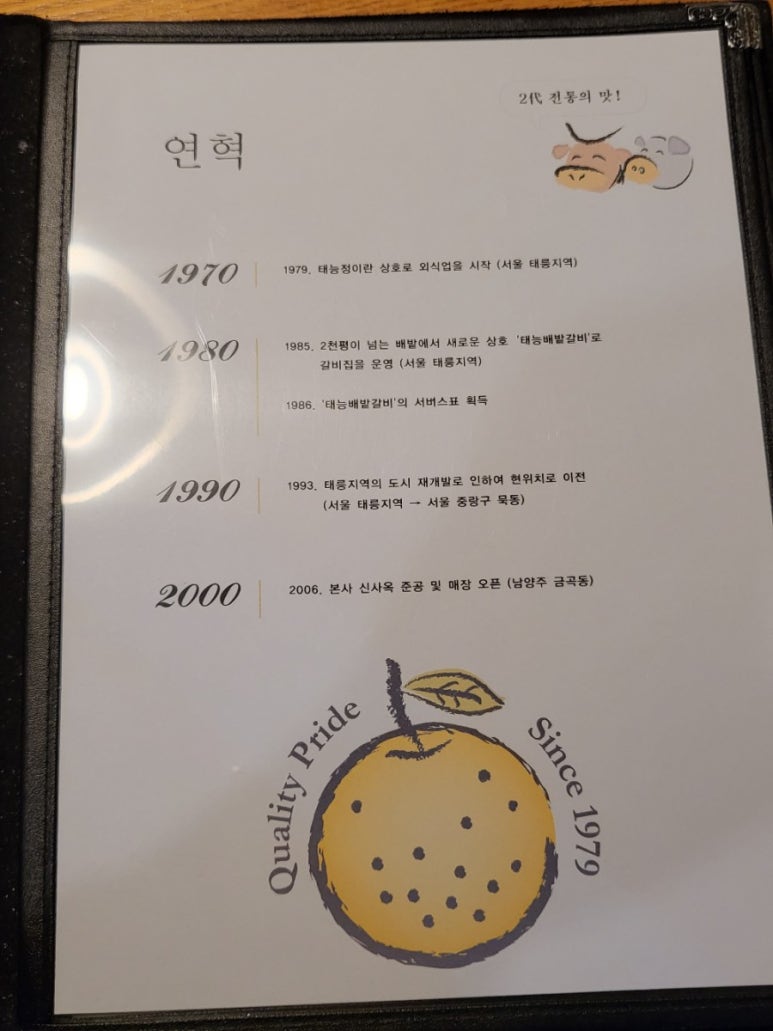 2代 전통의 맛!
연혁
1970
1979. 태능정이란 상호로 외식업을 시작 (서울 태릉지역)
1980
1985. 2천평이 넘는 배밭에서 새로운 상호 '태능배밭갈비'로
갈비집을 운영 (서울 태릉지역)
1986. '태능배밭갈비'의 서벼스표 획득
1990
1993. 태릉지역의 도시 재개발로 인하여 현위치로 이전
(서울 태릉지역 → 서울 중랑구 묵동)
2000
2006. 본사 신사옥 준공 및 매장 오픈 (남양주 금곡동)
Quality Pride
Since 1979